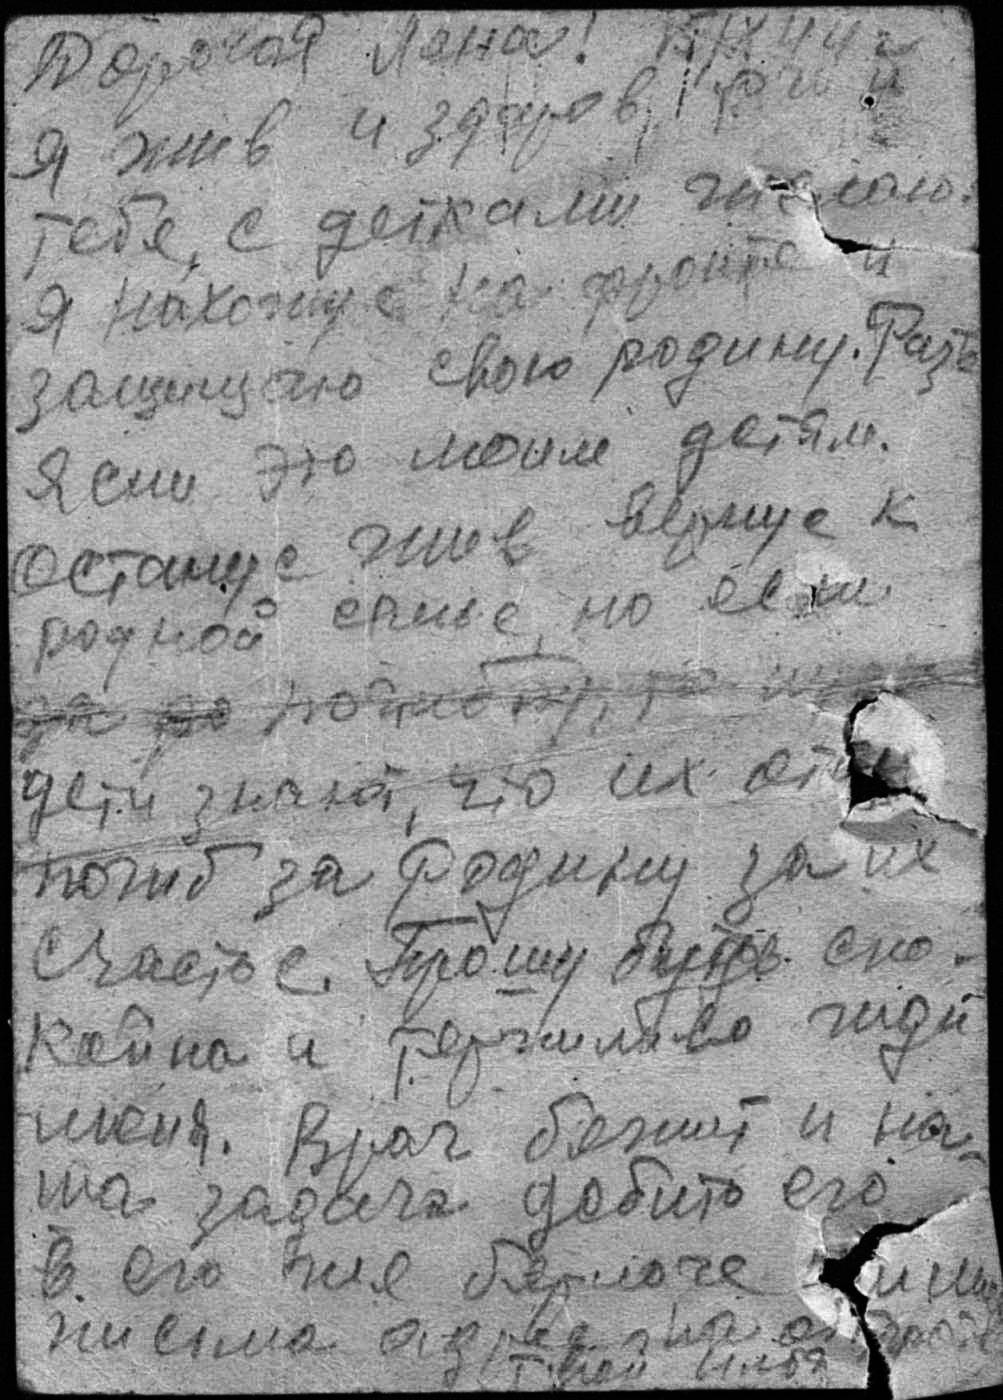 Дорогая Лена!
Я жив и здоров, того и
тебе, с детками желаю.
Я нахожус на фронте и
защищаю свою родину. Разъ
Ясни это моим детям.
Останус жив вернус к
родной семье, но если
погибну, то
дети знают, что их отец
погиб за Родину за их
Счастье. Прошу будь спо-
койна и терпиливо жди
меня. Враг бежит и на-
ша задача добить его
в его же берлоге пиши
письма адрес на обороте
Твой